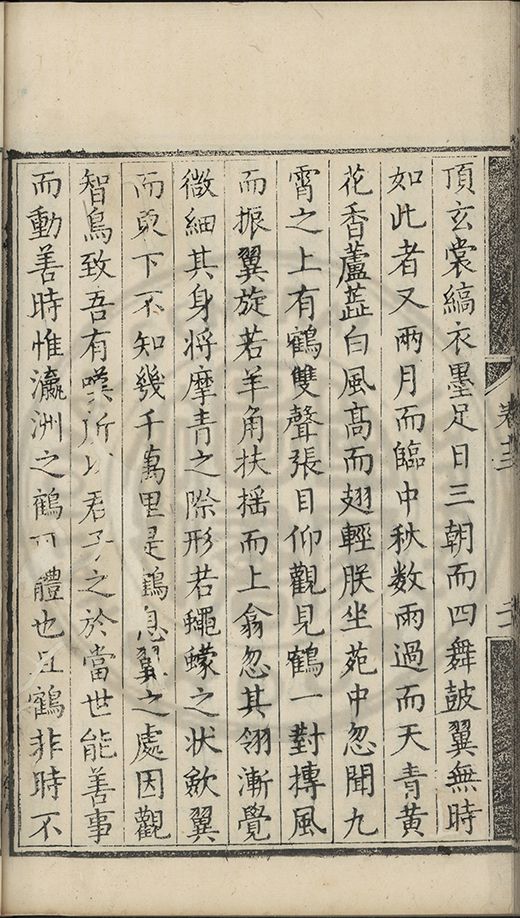 頂玄裳縞衣墨足日三朝而四舞鼓翼無時
如此者又兩月而臨中秋数雨過而天青黄
花香蘆蕋白風髙而翅輕朕坐苑中忽聞九
霄之上有鶴雙聲張目仰觀見鶴一對摶風
而振翼旋若羊角扶摇而上翕忽其翎漸覺
微細其身将摩青之際形若蠅蠓之状歛翼
而更下不知幾千萬里是鶴息翼之處因觀
智鳥致吾有嘆所以君子之於當世能善事
而動善時惟瀛洲之鶴可體也且鶴非時不